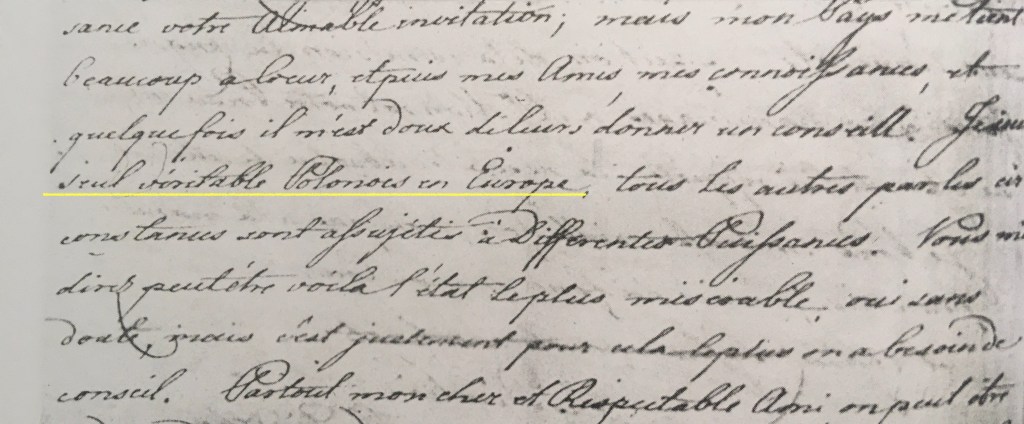 sance votre Aimable invitation; mais mon Pays metient
beaucoup a Coeur, et puis mes Amis, mes connoissances, et
quelque fois il m'est doux de leurs donner un conseill. Je suis
seul véritable Polonois en Europe, tous les autres par les cir
constances sont assujétis à Differentes Puissances. Vous me
direz peut être voila l'état le plus miserable oui sans
doute, mais c'est justement pour cela le plus on a besoin de
conseil. Partout mon cher et Respectable Ami on peut être